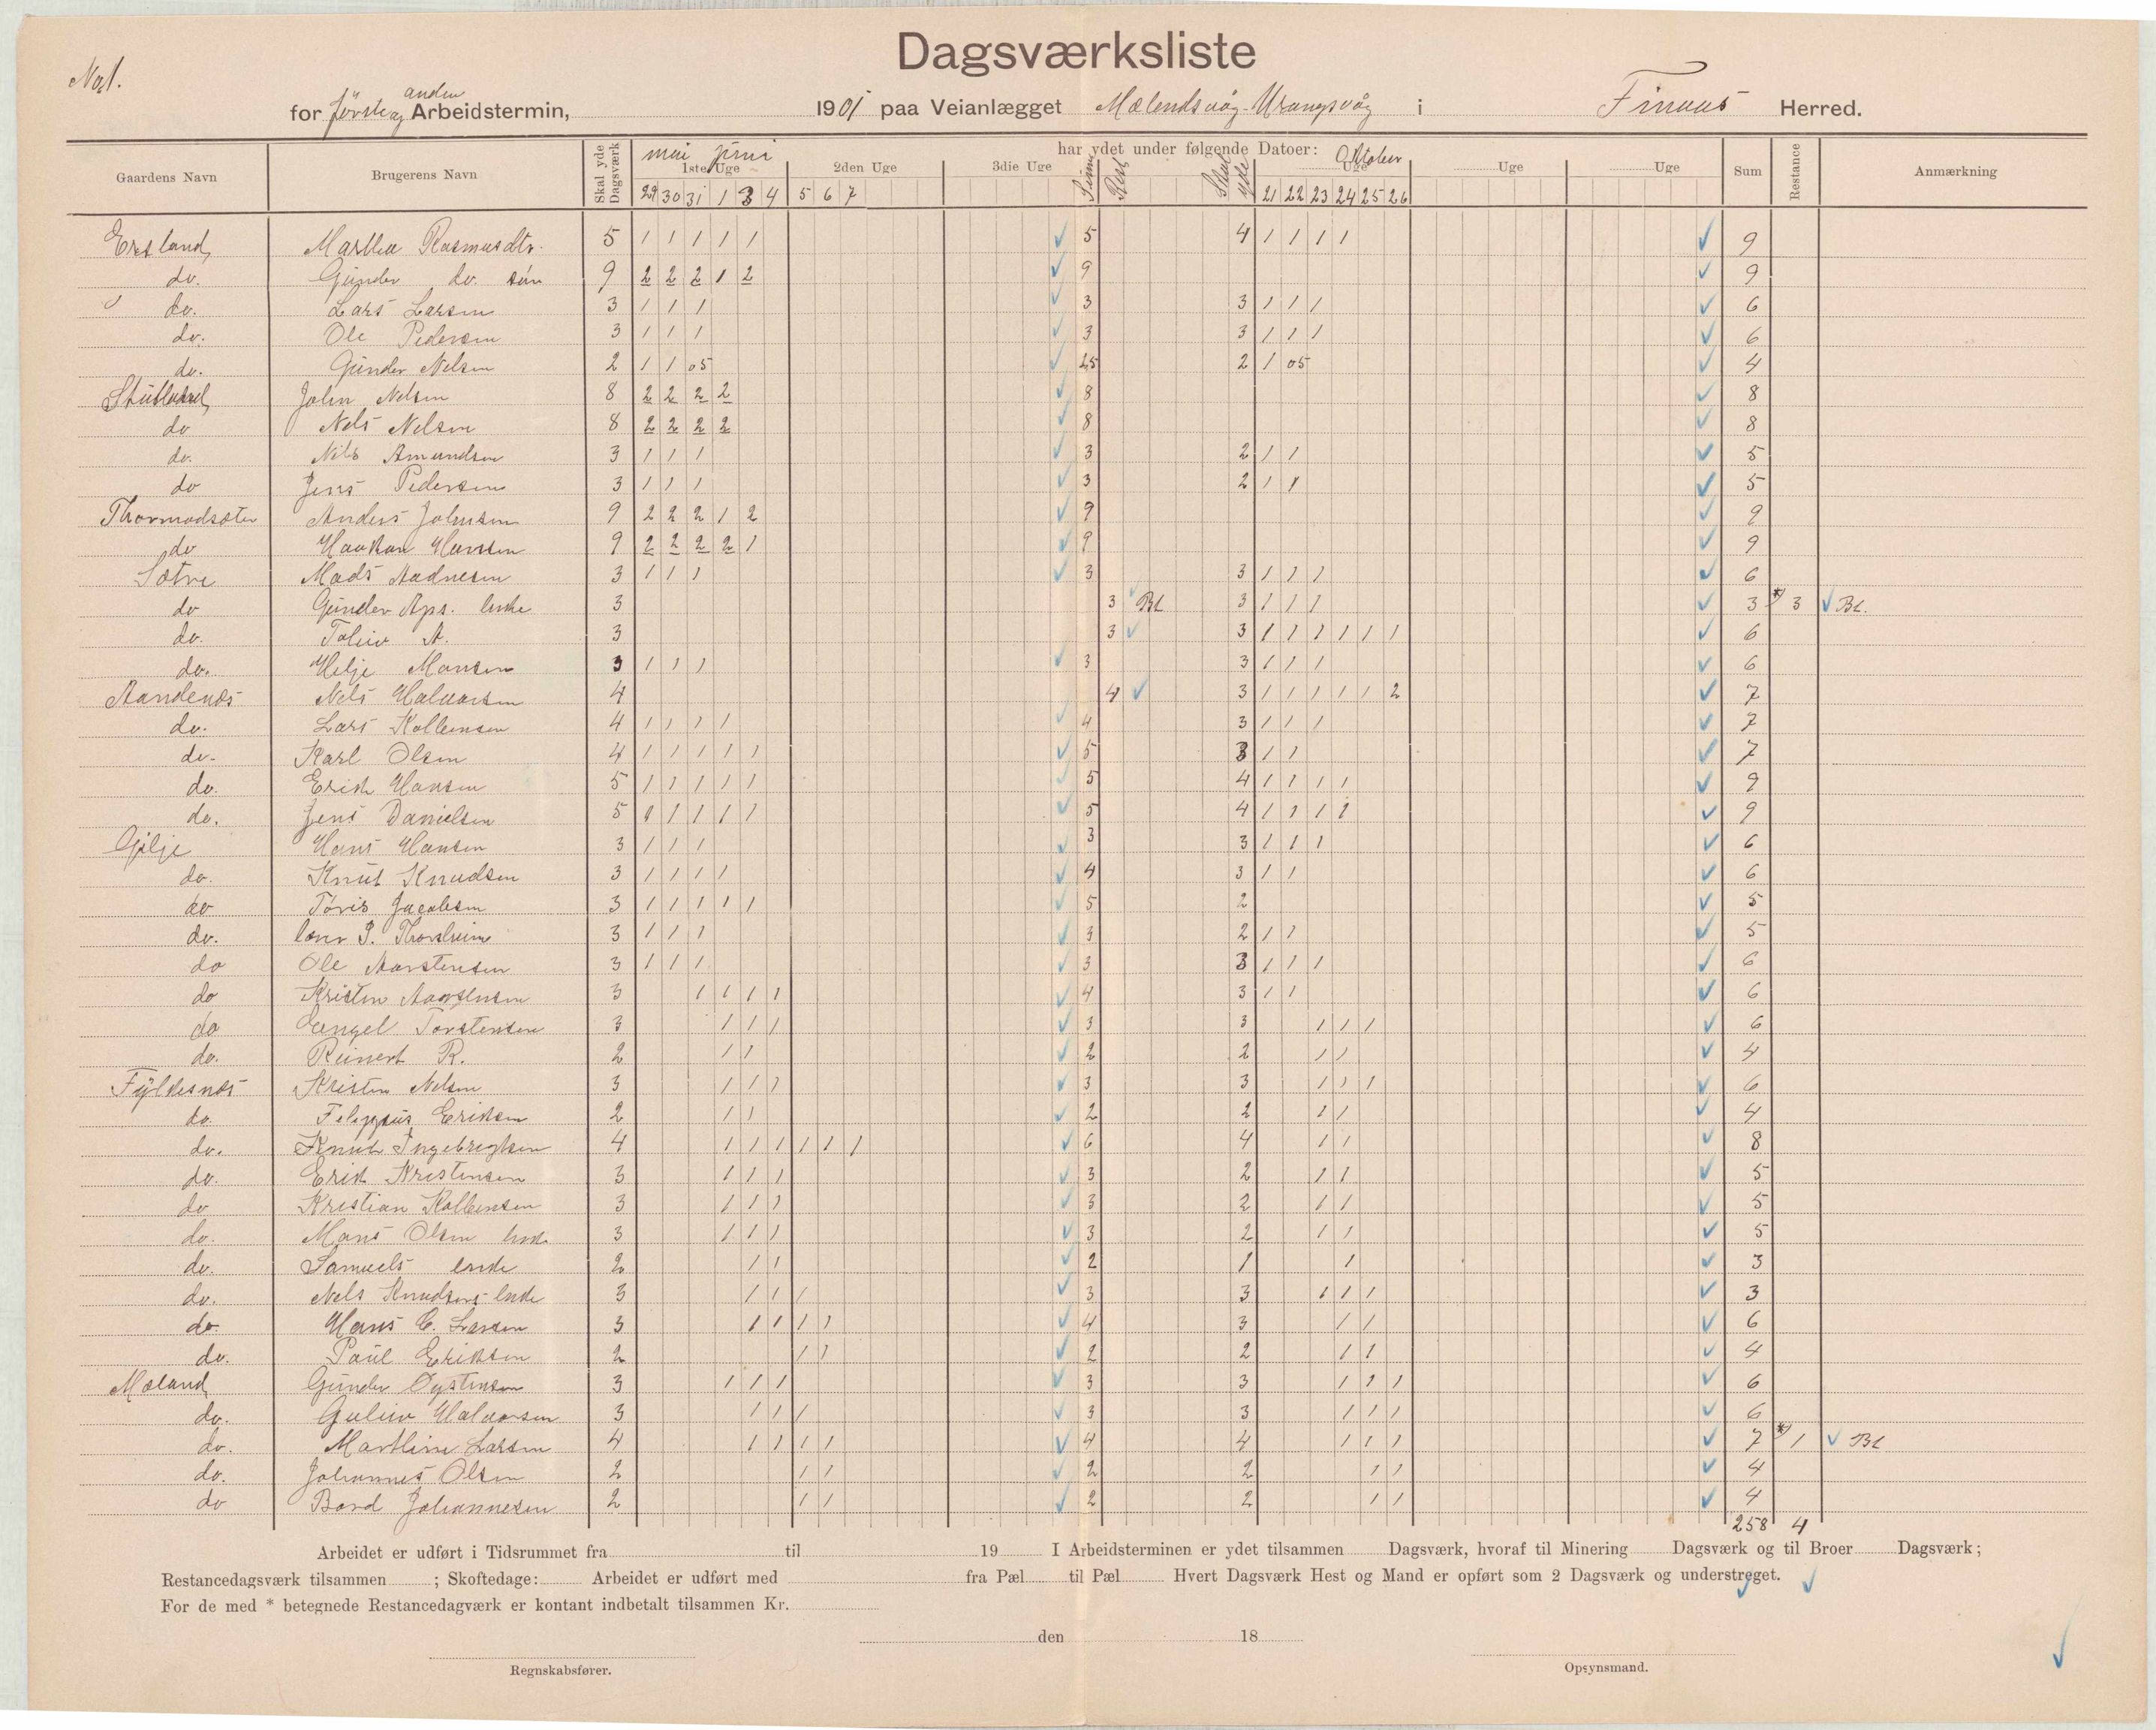 No 1.
Dagsværksliste
for første og anden Arbeidstermin, 1901 paa Veianlægget Mælendsvåg-Urangsvåg i Finnås Herred.
Gaardens Navn Brugerens Navn Skal yde Dagsværk har ydet under følgende Datoer: Sum Restance Anmærkning
mai juni Oktober
1ste Uge 2den Uge 3die Uge Summa Rest Skal yde Uge Uge Uge
29 30 31 1 3 4 5 6 7 21 22 23 24 25 26
Eresland Marthea Rasmusdtr. 5 1 1 1 1 1 5 4 1 1 1 1 9
do. Gunder do. søn 9 2 2 2 1 2 9 9
do. Lars Larsen 3 1 1 1 3 3 1 1 1 6
do. Ole Pedersen 3 1 1 1 3 3 1 1 1 6
do. Gunder Nelsen 2 1 1 05 25 2 1 05 4
John Nelsen 8 2 2 2 2 8 8
do Nels Nelsen 8 2 2 2 2 8 8
do. Nils Amundsen 3 1 1 1 3 2 1 1 5
do Jens Pedersen 3 1 1 1 3 2 1 1 5
Thormodsæter Anders Johnsen 9 2 2 2 1 2 9 9
do Haakon Hansen 9 2 2 2 2 1 9 9
Sætre Mads Aadnesen 3 1 1 1 3 3 1 1 1 6
do Gunder Aps. enke 3 3 Bt 3 1 1 1 3 * 3 Bt.
do. Toliv A. 3 3 3 1 1 1 1 1 1 6
do. Helje Monsen 3 1 1 1 3 3 1 1 1 6
Aandenæs Nels Halvorsen 4 4 3 1 1 1 1 1 2 7
do. Lars Kolbensen 4 1 1 1 1 4 3 1 1 1 7
do. Karl Olsen 4 1 1 1 1 1 5 3 1 1 7
do. Erik Hansen 5 1 1 1 1 1 5 4 1 1 1 1 9
do. Jens Danielsen 5 1 1 1 1 1 5 4 1 1 1 1 9
Gilje Hans Hansen 3 1 1 1 3 3 1 1 1 6
do. Knut Knudsen 3 1 1 1 1 4 3 1 1 6
do Tøris Jacobsen 3 1 1 1 1 1 5 2 5
do. P. Thorsheim 3 1 1 1 3 2 1 1 5
do Ole Aarstensen 3 1 1 1 3 3 1 1 1 6
do Kristen Aarstensen 3 1 1 1 1 4 3 1 1 6
do Engel Torstensen 3 1 1 1 3 3 1 1 1 6
do. Reinert R. 2 1 1 2 2 1 1 4
Fylkesnæs Kristen Nelsen 3 1 1 1 3 3 1 1 1 6
do. Filippus Eriksen 2 1 1 2 2 1 1 4
do. Knut Ingebregtsen 4 1 1 1 1 1 1 6 4 1 1 8
do. Erik Kristensen 3 1 1 1 3 2 1 1 5
do Kristian Kolbensen 3 1 1 1 3 2 1 1 5
do. Mons Olsen enke 3 1 1 1 3 2 1 1 5
do. Samuels enke 2 1 1 2 1 1 3
do. Nels Knudsens enke 3 1 1 1 3 3 1 1 1 3
do. Hans C. Larsen 3 1 1 1 1 4 3 1 1 6
do. Paul Eriksen 2 1 1 2 2 1 1 4
Mæland Gunder Øystensen 3 1 1 1 3 3 1 1 1 6
do. Guliv Halvorsen 3 1 1 1 3 3 1 1 1 6
do. Marthine Larsen 4 1 1 1 1 4 4 1 1 1 7 * 1 Bt
do. Johannes Olsen 2 1 1 2 2 1 1 4
do Bård Johannesen 2 1 1 2 2 1 1 4
258 4
Arbeidet er udført i Tidsrummet fra til 19 I Arbeidsterminen er ydet tilsammen Dagsværk, hvoraf til Minering Dagsværk og til Broer Dagsværk;
Restancedagsværk tilsammen ; Skoftedage: Arbeidet er udført med fra Pæl til Pæl Hvert Dagsværk Hest og Mand er opført som 2 Dagsværk og understreget.
For de med * betegnede Restancedagværk er kontant indbetalt tilsammen Kr.
den 18
Regnskabsfører. Opsynsmand.